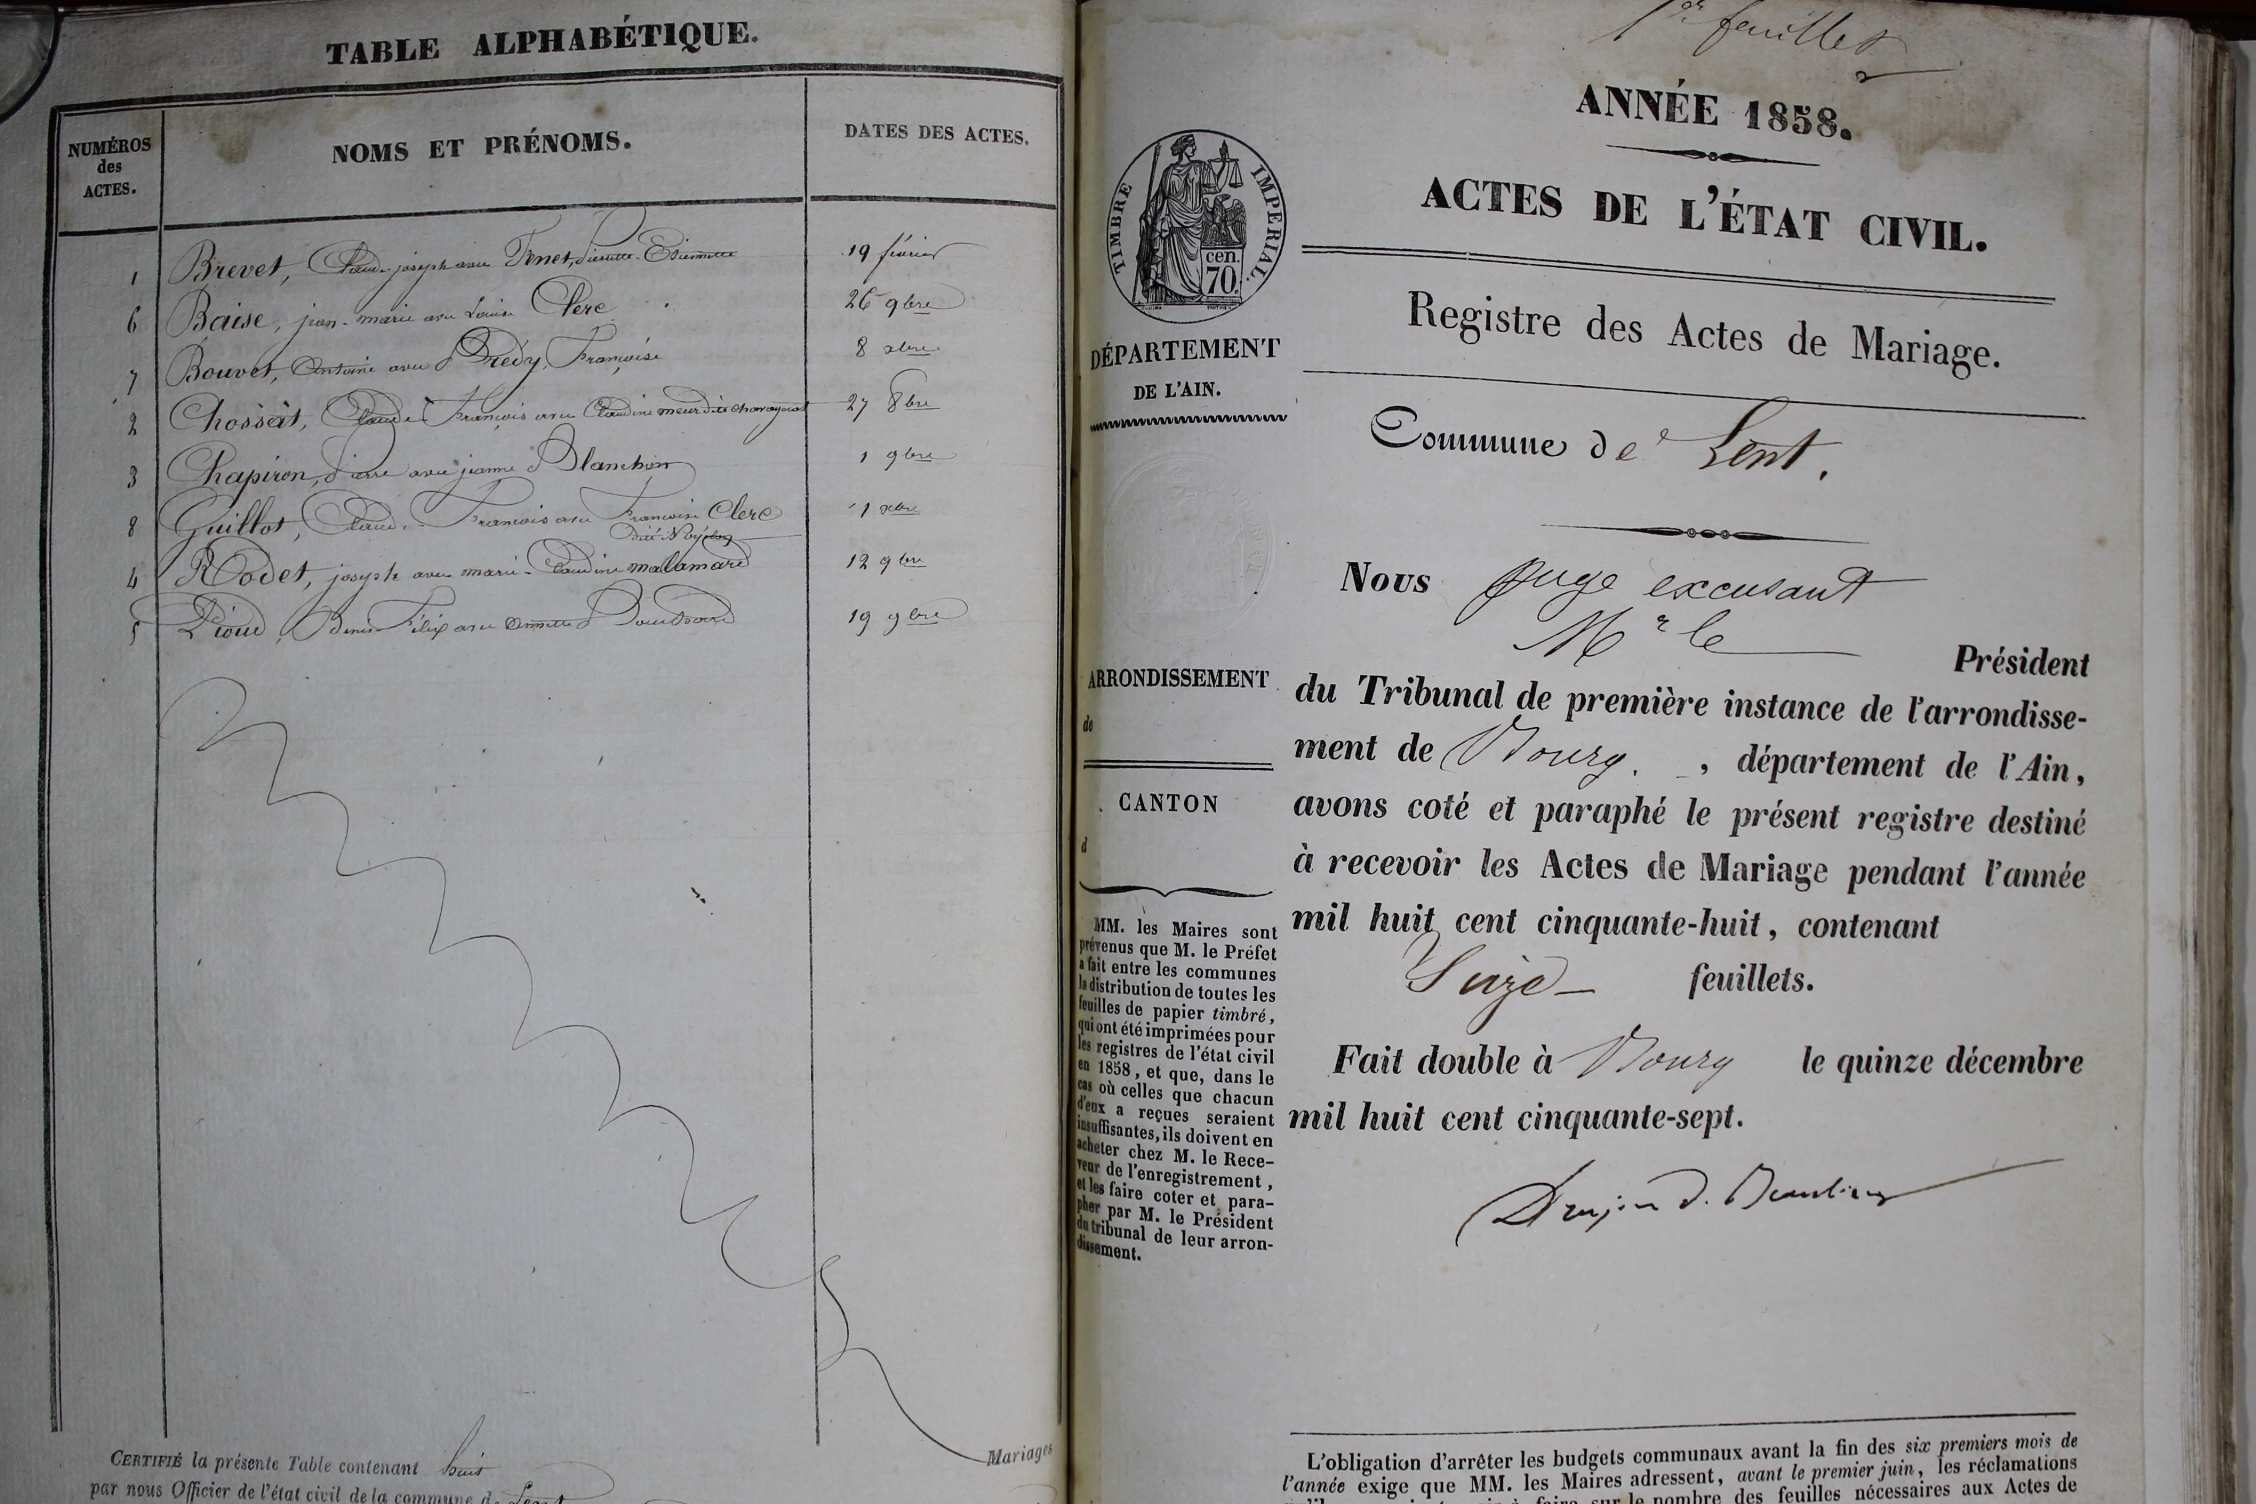 TABLE ALPHABÉTIQUE.
NUMÉROS
des
ACTES.
NOMS ET PRÉNOMS.
DATES DES ACTES.
1 Brevet, Claude joseph avec Pierrette Etiennette 19 février
6 Baise, jean-marie avec Louise Clerc 26 9bre
7 Bouvet, Antoine avec Françoise 8 xbre
2 Chossat, Claude François avec Claudine 27 8bre
3 Chapiron, Pierre avec jeanne Blanchon 1 9bre
8 Guillot, Claude François avec Françoise Clerc 11 xbre
dite
4 Rodet, joseph avec marie-Claudine malamard 12 9bre
5 Félix avec 19 9bre
CERTIFIÉ la présente Table contenant huit Mariages
par nous Officier de l'état civil de la commune de Lent
1er feuillet
ANNÉE 1858.
ACTES DE L'ÉTAT CIVIL.
Registre des Actes de Mariage.
Commune de Lent.
TIMBRE IMPERIAL.
cen.
70.
DÉPARTEMENT
DE L'AIN.
ARRONDISSEMENT
de
CANTON
d
MM. les Maires sont
prévenus que M. le Préfet
a fait entre les communes
la distribution de toutes les
feuilles de papier timbré,
qui ont été imprimées pour
les registres de l'état civil
en 1858, et que, dans le
cas où celles que chacun
d'eux a reçues seraient
insuffisantes, ils doivent en
acheter chez M. le Rece-
veur de l'enregistrement,
et les faire coter et para-
pher par M. le Président
du tribunal de leur arron-
dissement.
Nous juge excusant
Mr le Président
du Tribunal de première instance de l'arrondisse-
ment de Bourg, département de l'Ain,
avons coté et paraphé le présent registre destiné
à recevoir les Actes de Mariage pendant l'année
mil huit cent cinquante-huit, contenant
Seize feuillets.
Fait double à Bourg le quinze décembre
mil huit cent cinquante-sept.
L'obligation d'arrêter les budgets communaux avant la fin des six premiers mois de
l'année exige que MM. les Maires adressent, avant le premier juin, les réclamations
à faire sur le nombre des feuilles nécessaires aux Actes de